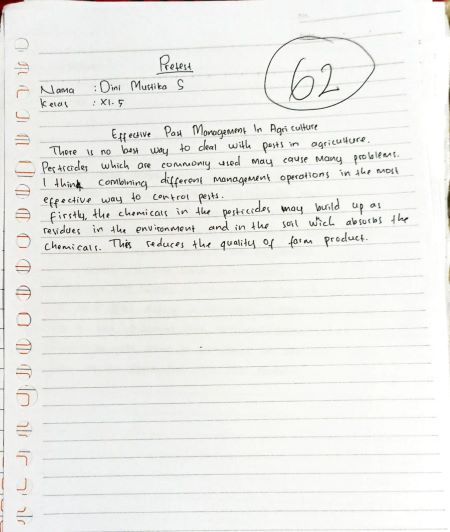 Pretest
62
Nama : Dini Mustika S
Kelas : XI.5
Effective Past Management In Agriculture
There is no best way to deal with pests in agriculture.
Pesticides which are commonly used may cause many problems.
I think combining different management operations in the most
effective way to control pests.
Firstly, the chemicals in the pestricides may build up as
residues in the environment and in the soil wich absorbs the
chemicals. This reduces the quality of farm product.